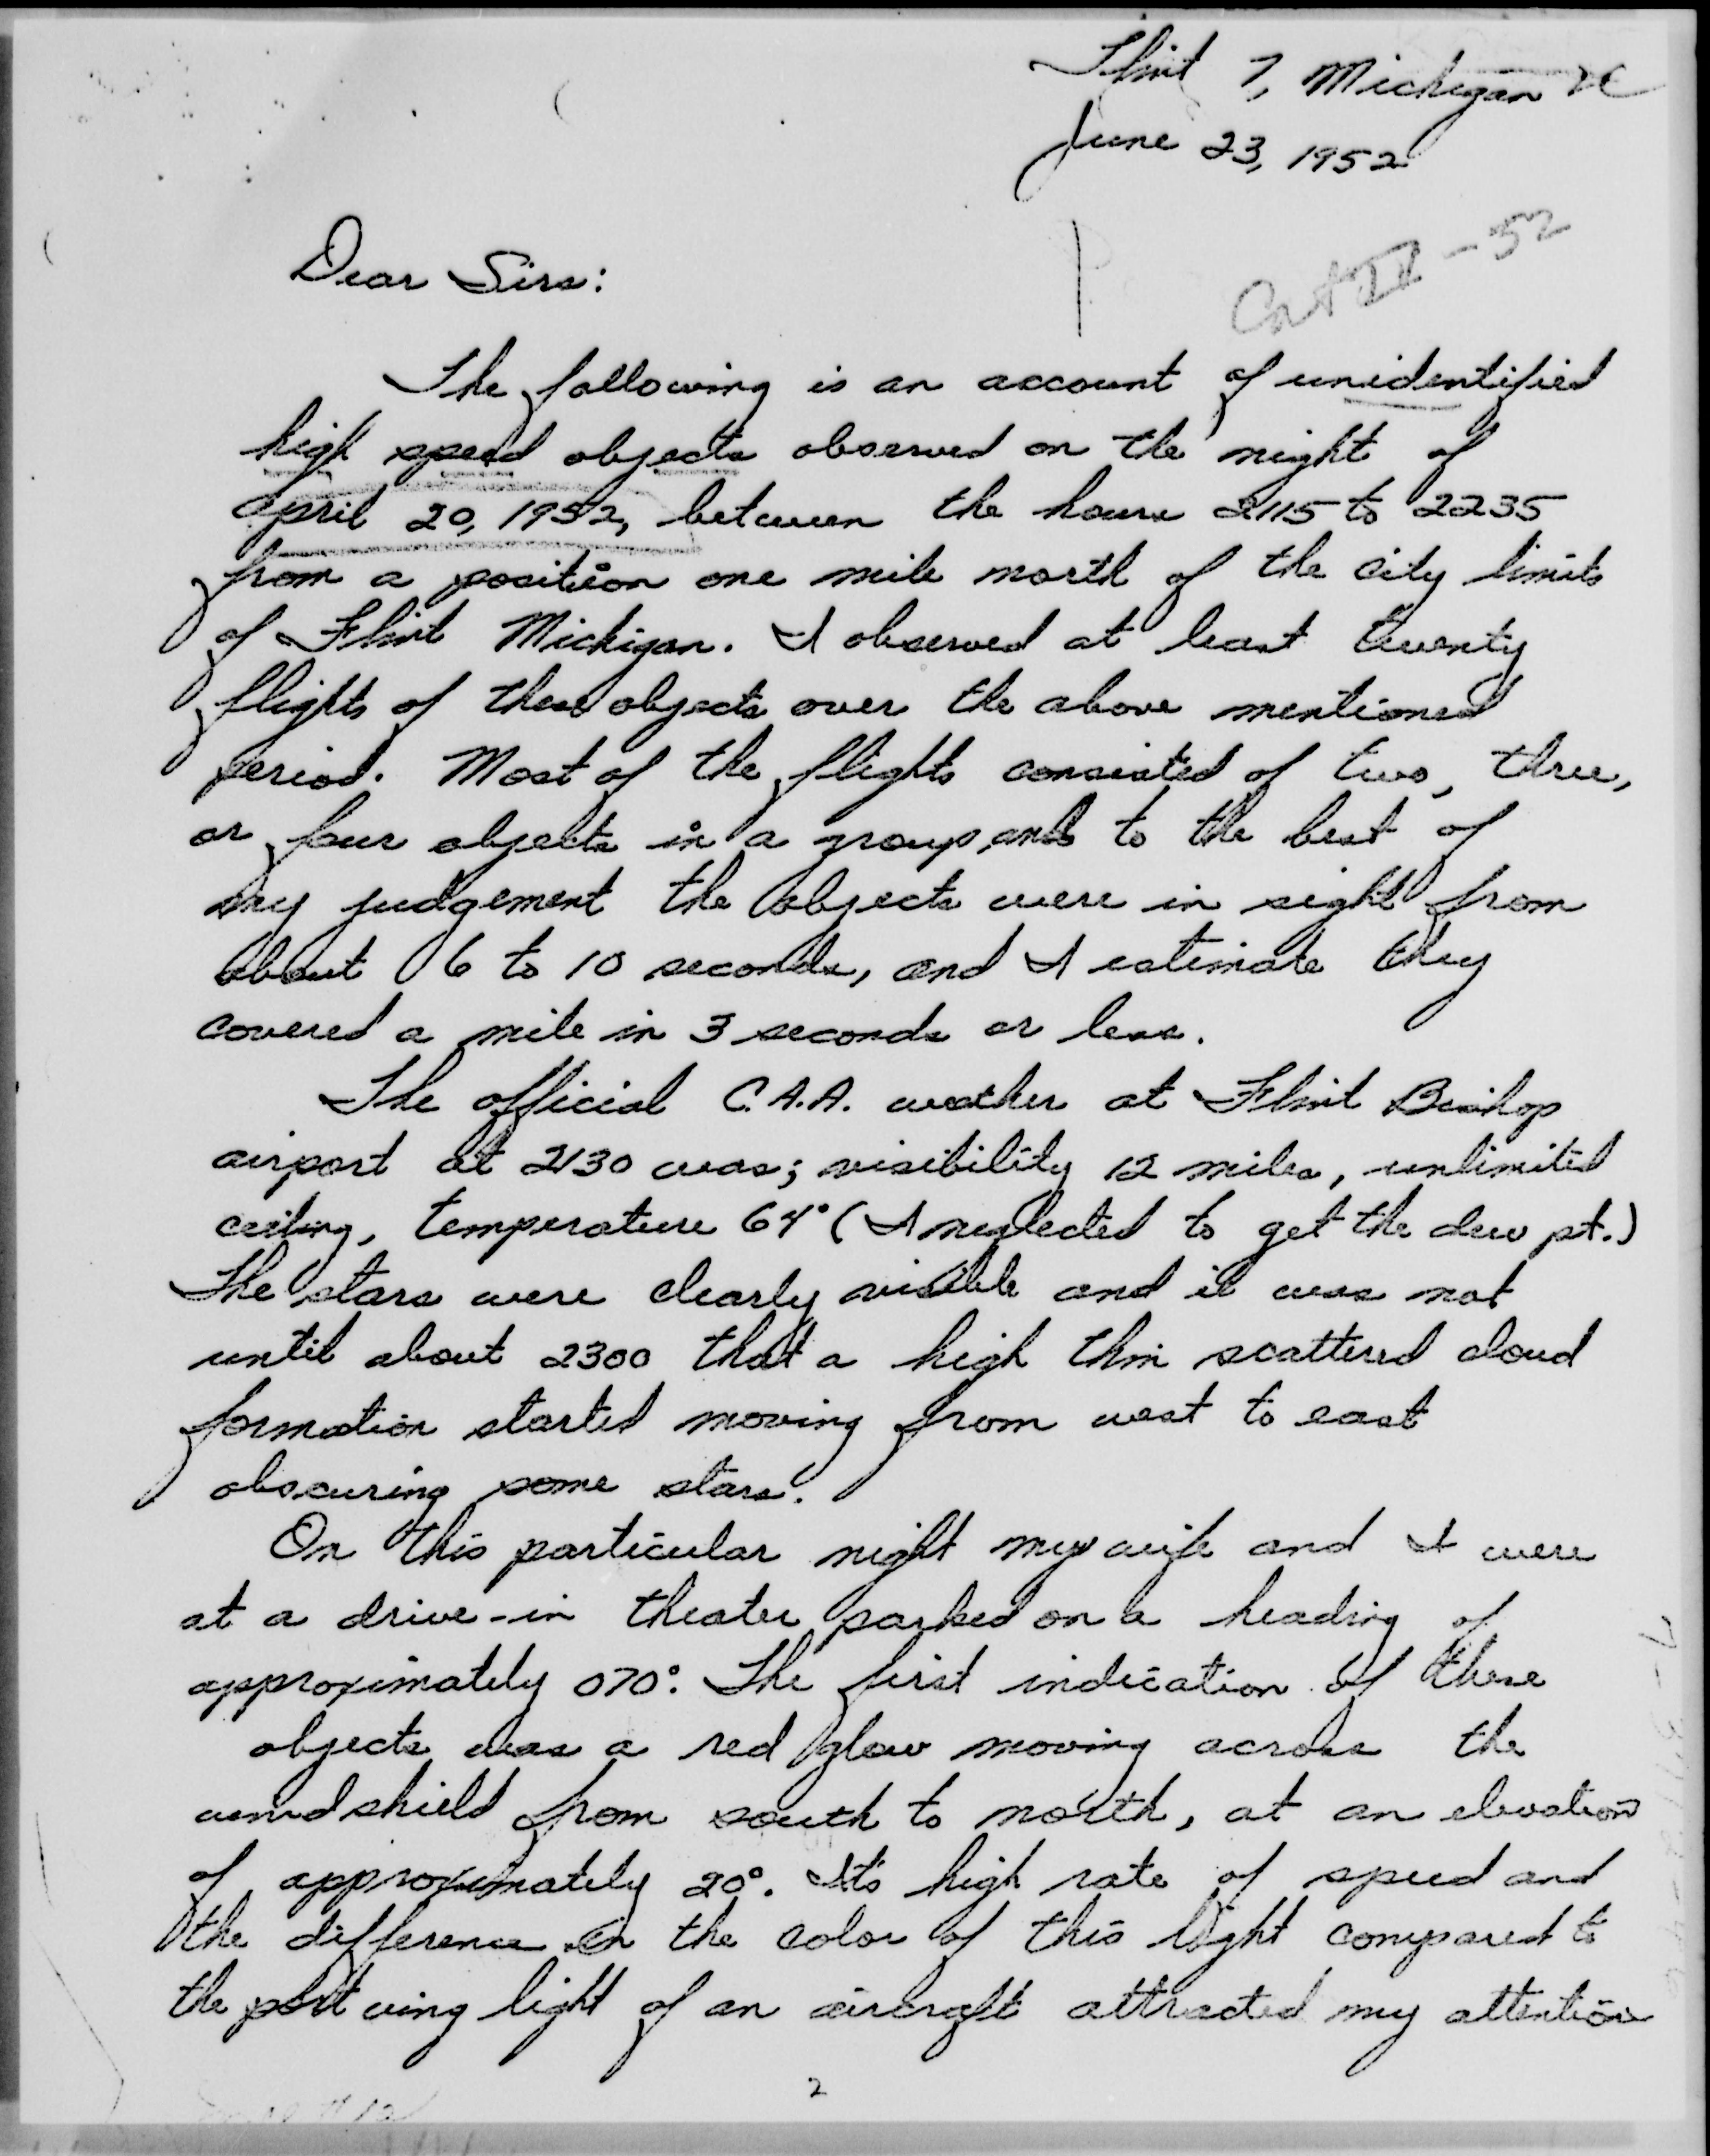 Flint 7, Michigan
June 23, 1952
Dear Sirs:
The following is an account of unidentified
high speed objects observed on the night of
April 20, 1952, between the hours 2115 to 2235
from a position one mile north of the city limits
of Flint Michigan. I observed at least twenty
flights of these objects over the above mentioned
period. Most of the flights consisted of two, three,
or four objects in a group, and to the best of
my judgement the objects were in sight from
about 6 to 10 seconds, and I estimate they
covered a mile in 3 seconds or less.
The official C.A.A. weather at Flint Bishop
airport at 2130 was; visibility 12 miles, unlimited
ceiling, temperature 64° (I neglected to get the dew pt.)
The stars were clearly visible and it was not
until about 2300 that a high thin scattered cloud
formation started moving from west to east
obscuring some stars.
On this particular night my wife and I were
at a drive-in theater parked on a heading of
approximately 070°. The first indication of these
objects was a red glow moving across the
windshield from south to north, at an elevation
of approximately 20°. It's high rate of speed and
the difference in the color of this light compared to
the port wing light of an aircraft attracted my attention
2